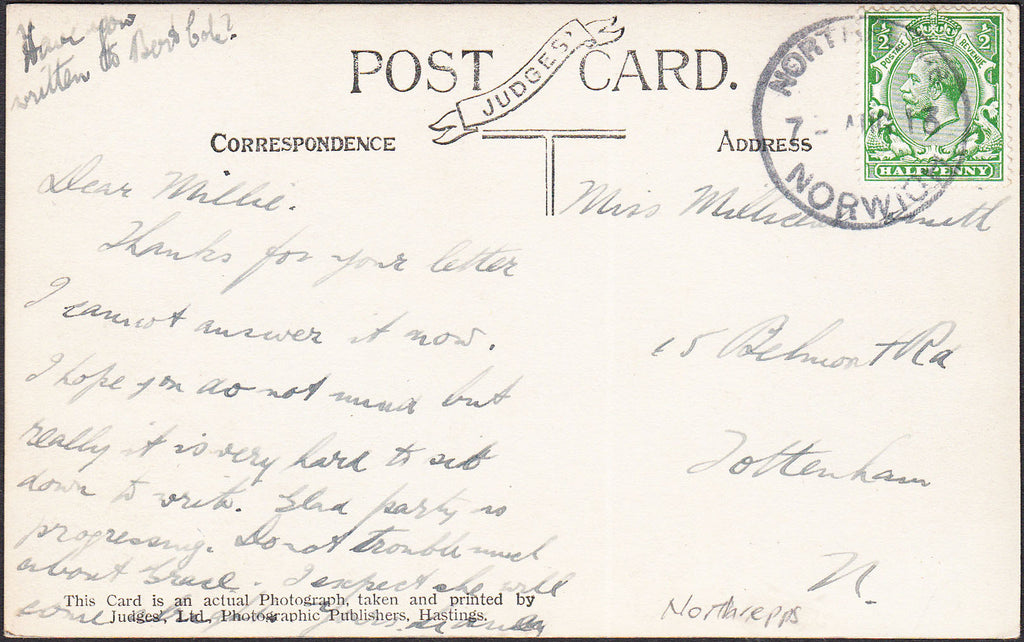 Have you
written to Bert Cole?
POST CARD.
JUDGES'
CORRESPONDENCE
ADDRESS
NORTH
7 18
NORWICH
POSTAGE REVENUE
½ ½
HALFPENNY
Dear Millie.
Thanks for your letter
I cannot answer it now.
I hope you do not mind but
really it is very hard to sit
down to write. Glad party is
progressing. Do not trouble much
about Grace. I expect she will
come
Miss Smith
15 Belmont Rd
Tottenham
N.
This Card is an actual Photograph, taken and printed by
Judges', Ltd., Photographic Publishers, Hastings.
Northrepps